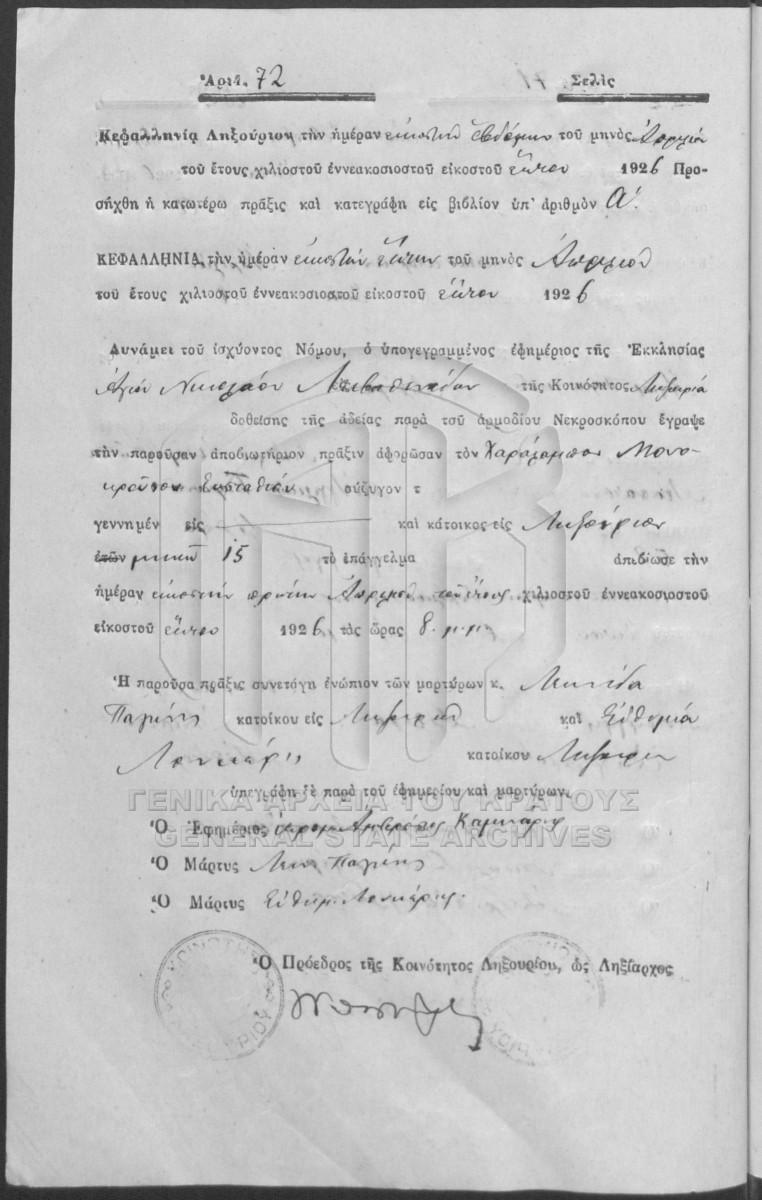 Ἀριθ. 72 Σελὶς
Κεφαλληνία Ληξούριον τὴν ἡμέραν εἰκοστὴν ἑβδόμην τοῦ μηνὸς Ἀπριλίου
τοῦ ἔτους χιλιοστοῦ ἐννεακοσιοστοῦ εἰκοστοῦ ἕκτου 1926 Προ-
σήχθη ἡ κατωτέρω πρᾶξις καὶ κατεγράφη εἰς βιβλίον ὑπ' ἀριθμὸν Α'.
ΚΕΦΑΛΛΗΝΙΑ τὴν ἡμέραν εἰκοστὴν ἕκτην τοῦ μηνὸς Ἀπριλίου
τοῦ ἔτους χιλιοστοῦ ἐννεακοσιοστοῦ εἰκοστοῦ ἕκτου 1926
Δυνάμει τοῦ ἰσχύοντος Νόμου, ὁ ὑπογεγραμμένος ἐφημέριος τῆς Ἐκκλησίας
Ἁγίου Νικολάου τῆς Κοινότητος Ληξουρίου
δοθείσης τῆς ἀδείας παρὰ τοῦ ἁρμοδίου Νεκροσκόπου ἔγραψε
τὴν παροῦσαν ἀποβιωτήριον πρᾶξιν ἀφορῶσαν τὸν Χαράλαμπον Μονο-
κρούσον Εὐσταθίου σύζυγον τ
γεννημέν εἰς καὶ κάτοικος εἰς Ληξούριον
ἐτῶν μηνῶν 15 τὸ ἐπάγγελμα ἀπεβίωσε τὴν
ἡμέραν εἰκοστὴν πρώτην Ἀπριλίου τοῦ ἔτους χιλιοστοῦ ἐννεακοσιοστοῦ
εἰκοστοῦ ἕκτου 1926 τὰς ὥρας 8 μ.μ.
Ἡ παροῦσα πρᾶξις συνετάγη ἐνώπιον τῶν μαρτύρων κ. Λεωνίδα
Παγώνη κατοίκου εἰς Ληξούριον καὶ Εὐθυμία
κατοίκου Ληξουρίου
ὑπεγράφη δὲ παρὰ τοῦ ἐφημερίου καὶ μαρτύρων.
ΓΕΝΙΚΑ ΑΡΧΕΙΑ ΤΟΥ ΚΡΑΤΟΥΣ
Ὁ Ἐφημέριος Ἀμβρόσιος
GENERAL STATE ARCHIVES
Ὁ Μάρτυς Λεων. Παγώνης
Ὁ Μάρτυς Εὐθυμ.
Ὁ Πρόεδρος τῆς Κοινότητος Ληξουρίου, ὡς Ληξίαρχος